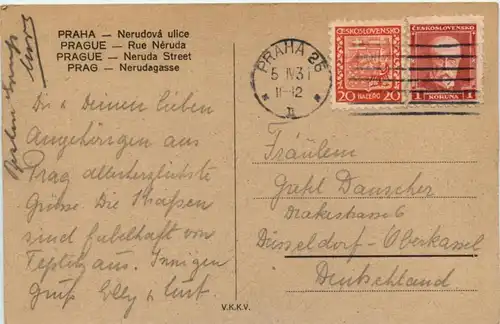 PRAHA — Nerudová ulice
PRAGUE — Rue Néruda
PRAGUE — Neruda Street
PRAG — Nerudagasse
Dir & Deinen lieben
Angehörigen aus
Prag allerherzlichste
Grüsse. Die Straßen
sind fabelhaft von
aus. Innigen
Gruß Elly & Curt.
PRAHA 26
5 IV 31
11-12
ČESKOSLOVENSKO
20 HALERŮ 20
ČESKOSLOVENSKO
1 KORUNA 1
Fräulein
Gretl Dauscher
Drakestrasse 6
Düsseldorf-Oberkassel
Deutschland
V.K.K.V.